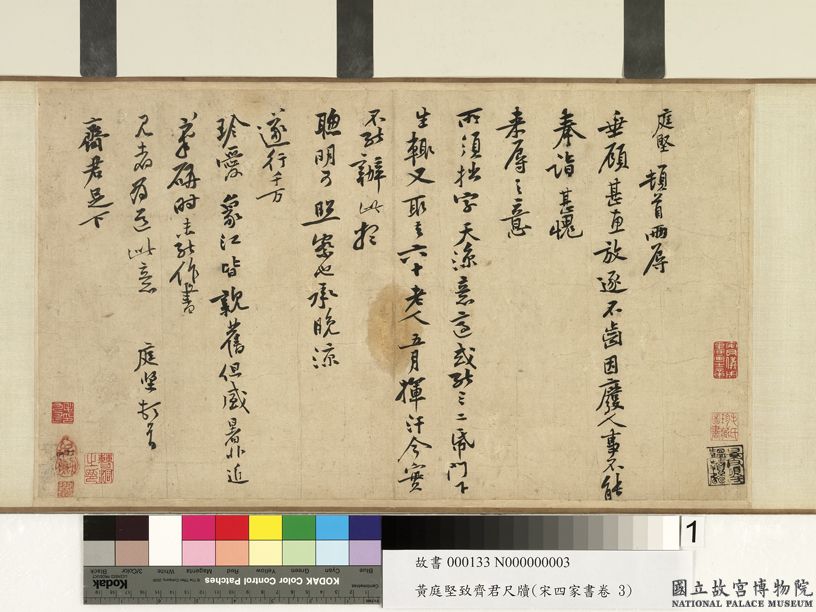 庭堅頓首兩辱
垂顧甚惠放逐不齒因廢人事不能
奉詣甚愧
來辱之意
所須拙字天涼意適或能三二紙門下
生輒又取去六十老人五月揮汗今實
不能辦此想
聰明可照察也承晚涼
遂行千万
珍愛象江皆親舊但盛暑非近
筆硯時未能作書
見者為道此意 庭堅頓首
齊君足下
1
故書 000133 N000000003
黃庭堅致齊君尺牘(宋四家書卷 3)
國立故宮博物院
NATIONAL PALACE MUSEUM
Kodak
KODAK Color Control Patches
Blue
Cyan
Green
Yellow
Red
Magenta
White
3/Color
Black